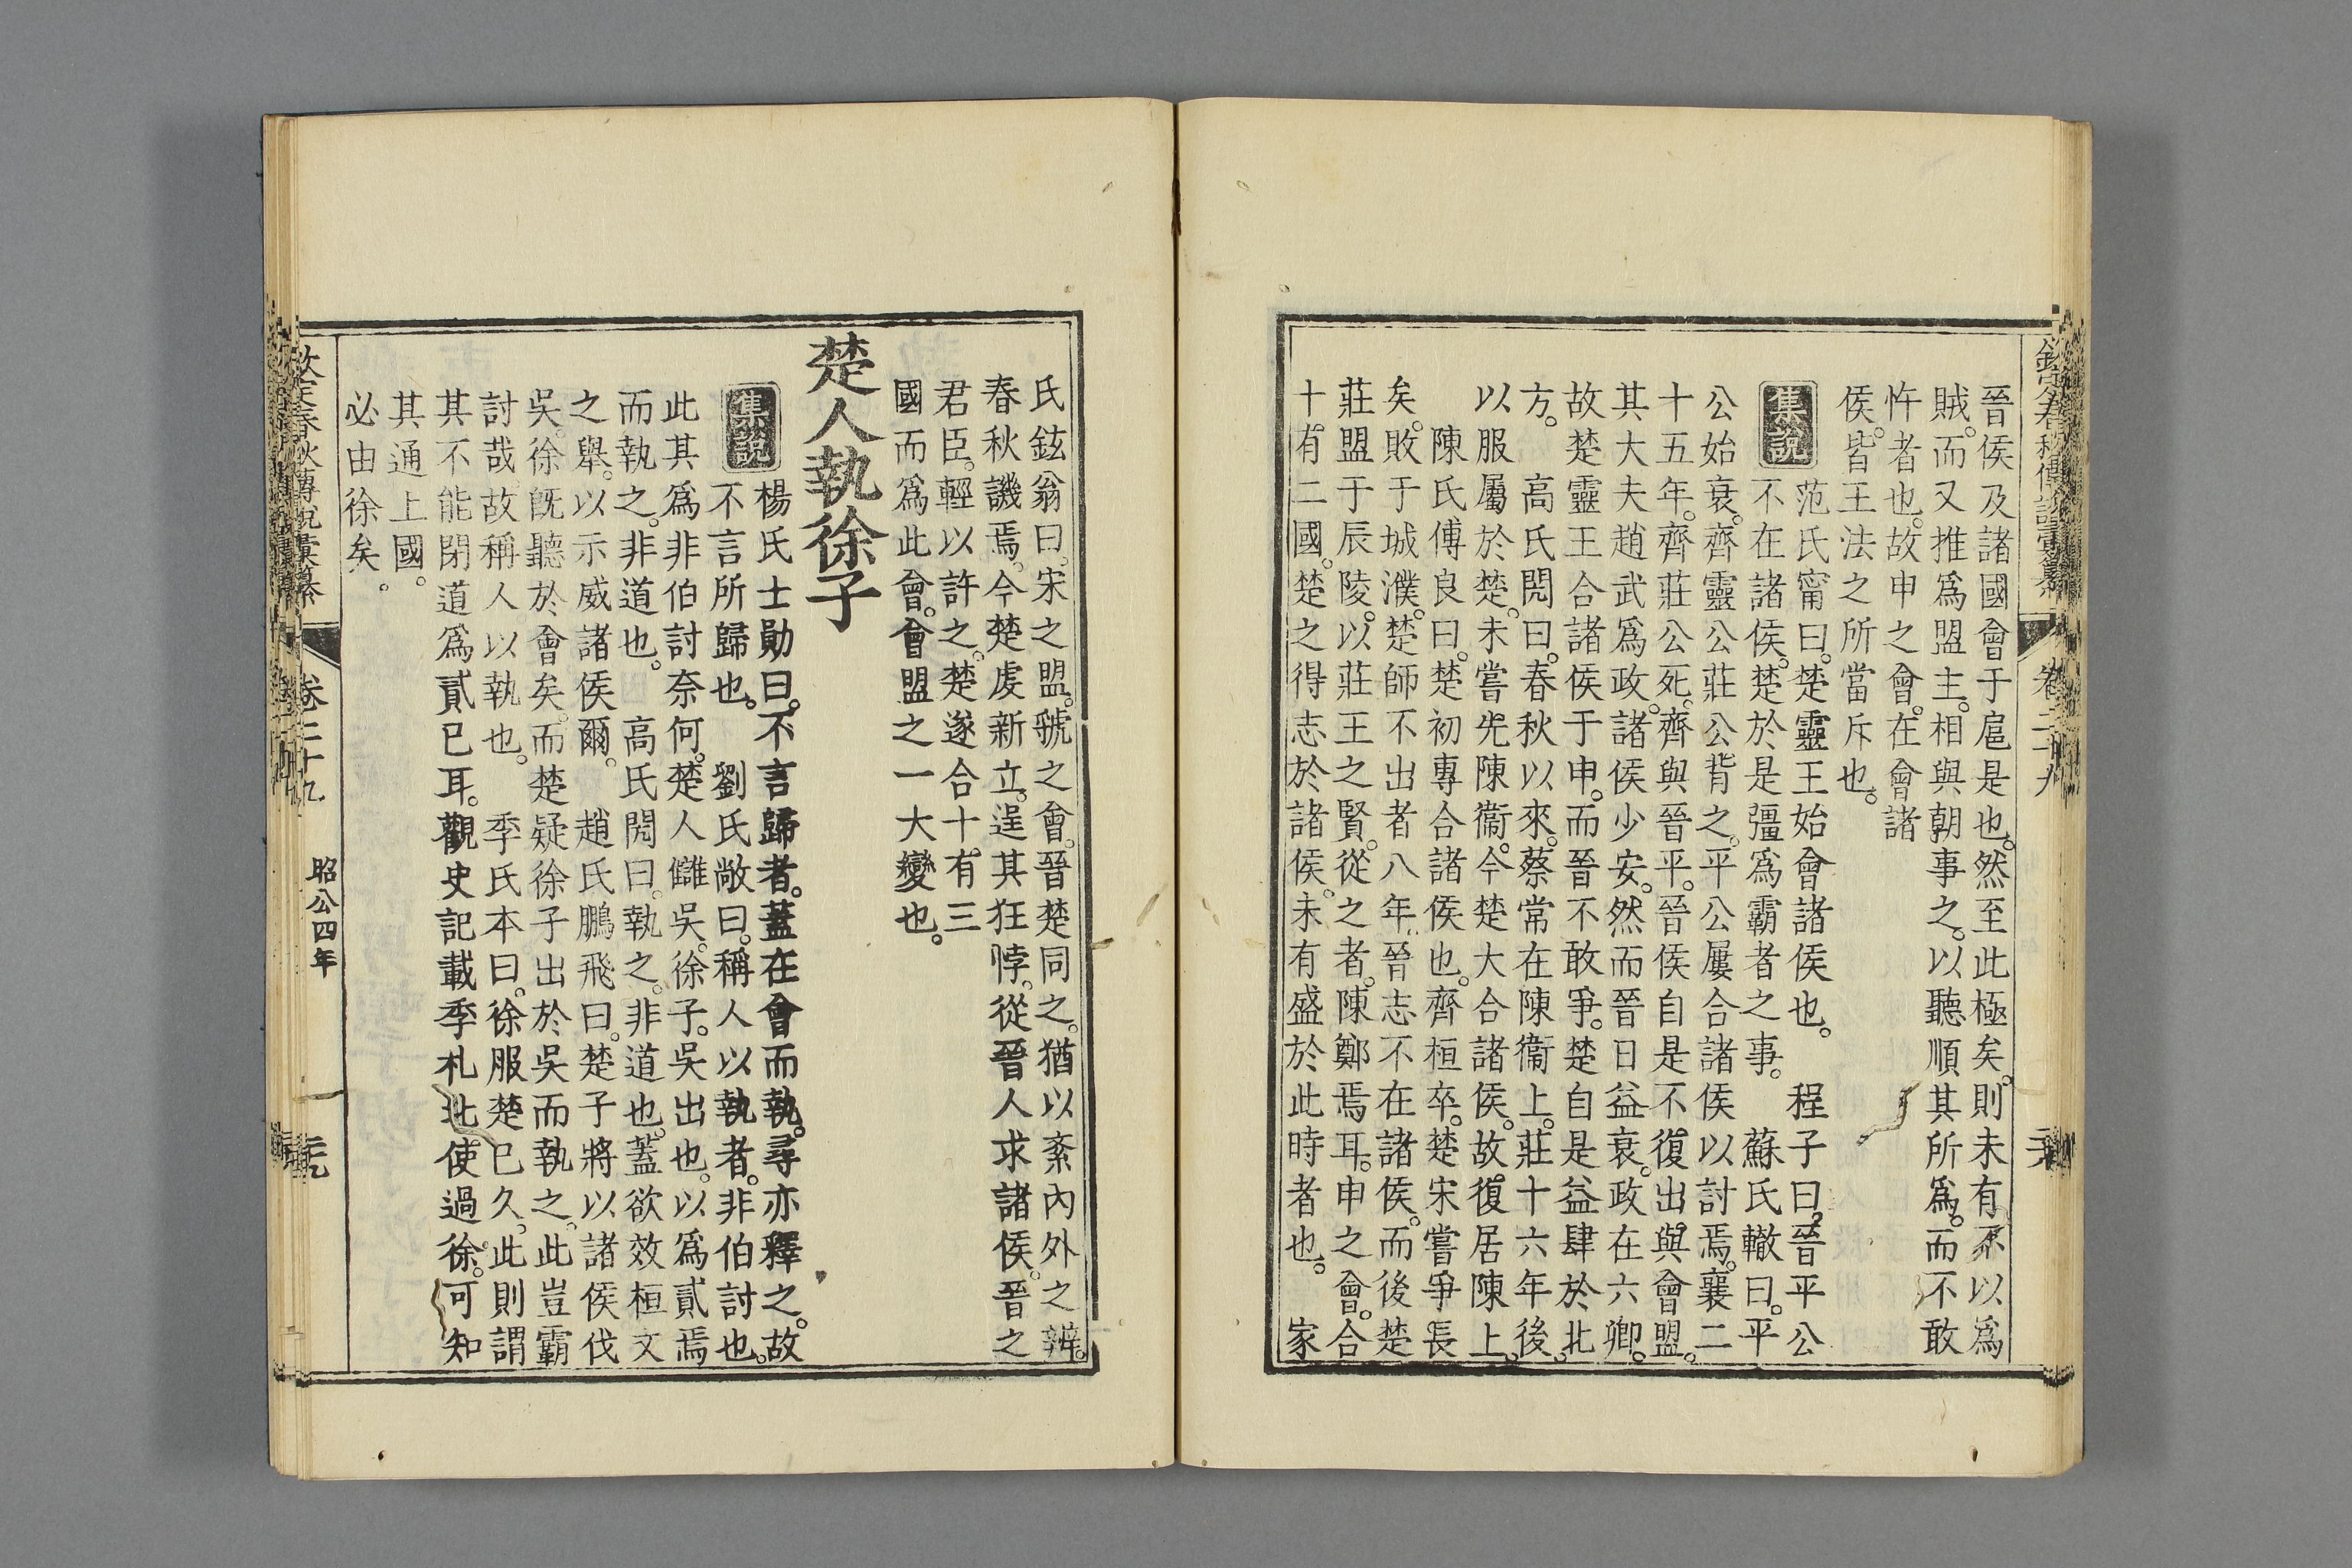 晉侯及諸國會于扈是也。然至此極矣。則未有不以爲
賊。而又推爲盟主。相與朝事之。以聽順其所爲。而不敢
忤者也。故申之會。在會諸
侯。皆王法之所當斥也。
集說
范氏甯曰。楚靈王始會諸侯也。　程子曰。晉平公
不在諸侯。楚於是彊爲霸者之事。　蘇氏轍曰。平
公始衰。齊靈公莊公背之。平公屢合諸侯以討焉。襄二
十五年。齊莊公死。齊與晉平。晉侯自是不復出與會盟。
其大夫趙武爲政。諸侯少安。然而晉日益衰。政在六卿。
故楚靈王合諸侯于申。而晉不敢爭。楚自是益肆於北
方。　高氏閌曰。春秋以來。蔡常在陳衞上。莊十六年後。
以服屬於楚。未嘗先陳衞。今楚大合諸侯。故復居陳上。
陳氏傅良曰。楚初專合諸侯也。齊桓卒。楚宋嘗爭長
矣。敗于城濮。楚師不出者八年。晉志不在諸侯。而後楚
莊盟于辰陵。以莊王之賢。從之者。陳鄭焉耳。申之會。合
十有二國。楚之得志於諸侯。未有盛於此時者也。　家
氏鉉翁曰。宋之盟。虢之會。晉楚同之。猶以紊內外之辨。
春秋譏焉。今楚虔新立。逞其狂悖。從晉人求諸侯。晉之
君臣。輕以許之。楚遂合十有三
國而爲此會。會盟之一大變也。
楚人執徐子
集說
楊氏士勛曰。不言歸者。蓋在會而執。尋亦釋之。故
不言所歸也。　劉氏敞曰。稱人以執者。非伯討也。
此其爲非伯討奈何。楚人讎吳。徐子。吳出也。以爲貳焉
而執之。非道也。　高氏閌曰。執之。非道也。蓋欲效桓文
之舉。以示威諸侯爾。　趙氏鵬飛曰。楚子將以諸侯伐
吳。徐旣聽於會矣。而楚疑徐子出於吳而執之。此豈霸
討哉。故稱人以執也。　季氏本曰。徐服楚已久。此則謂
其不能閉道爲貳已耳。觀史記載季札北使過徐。可知
其通上國。
必由徐矣。
欽定春秋傳說彙纂　卷二十九　昭公四年